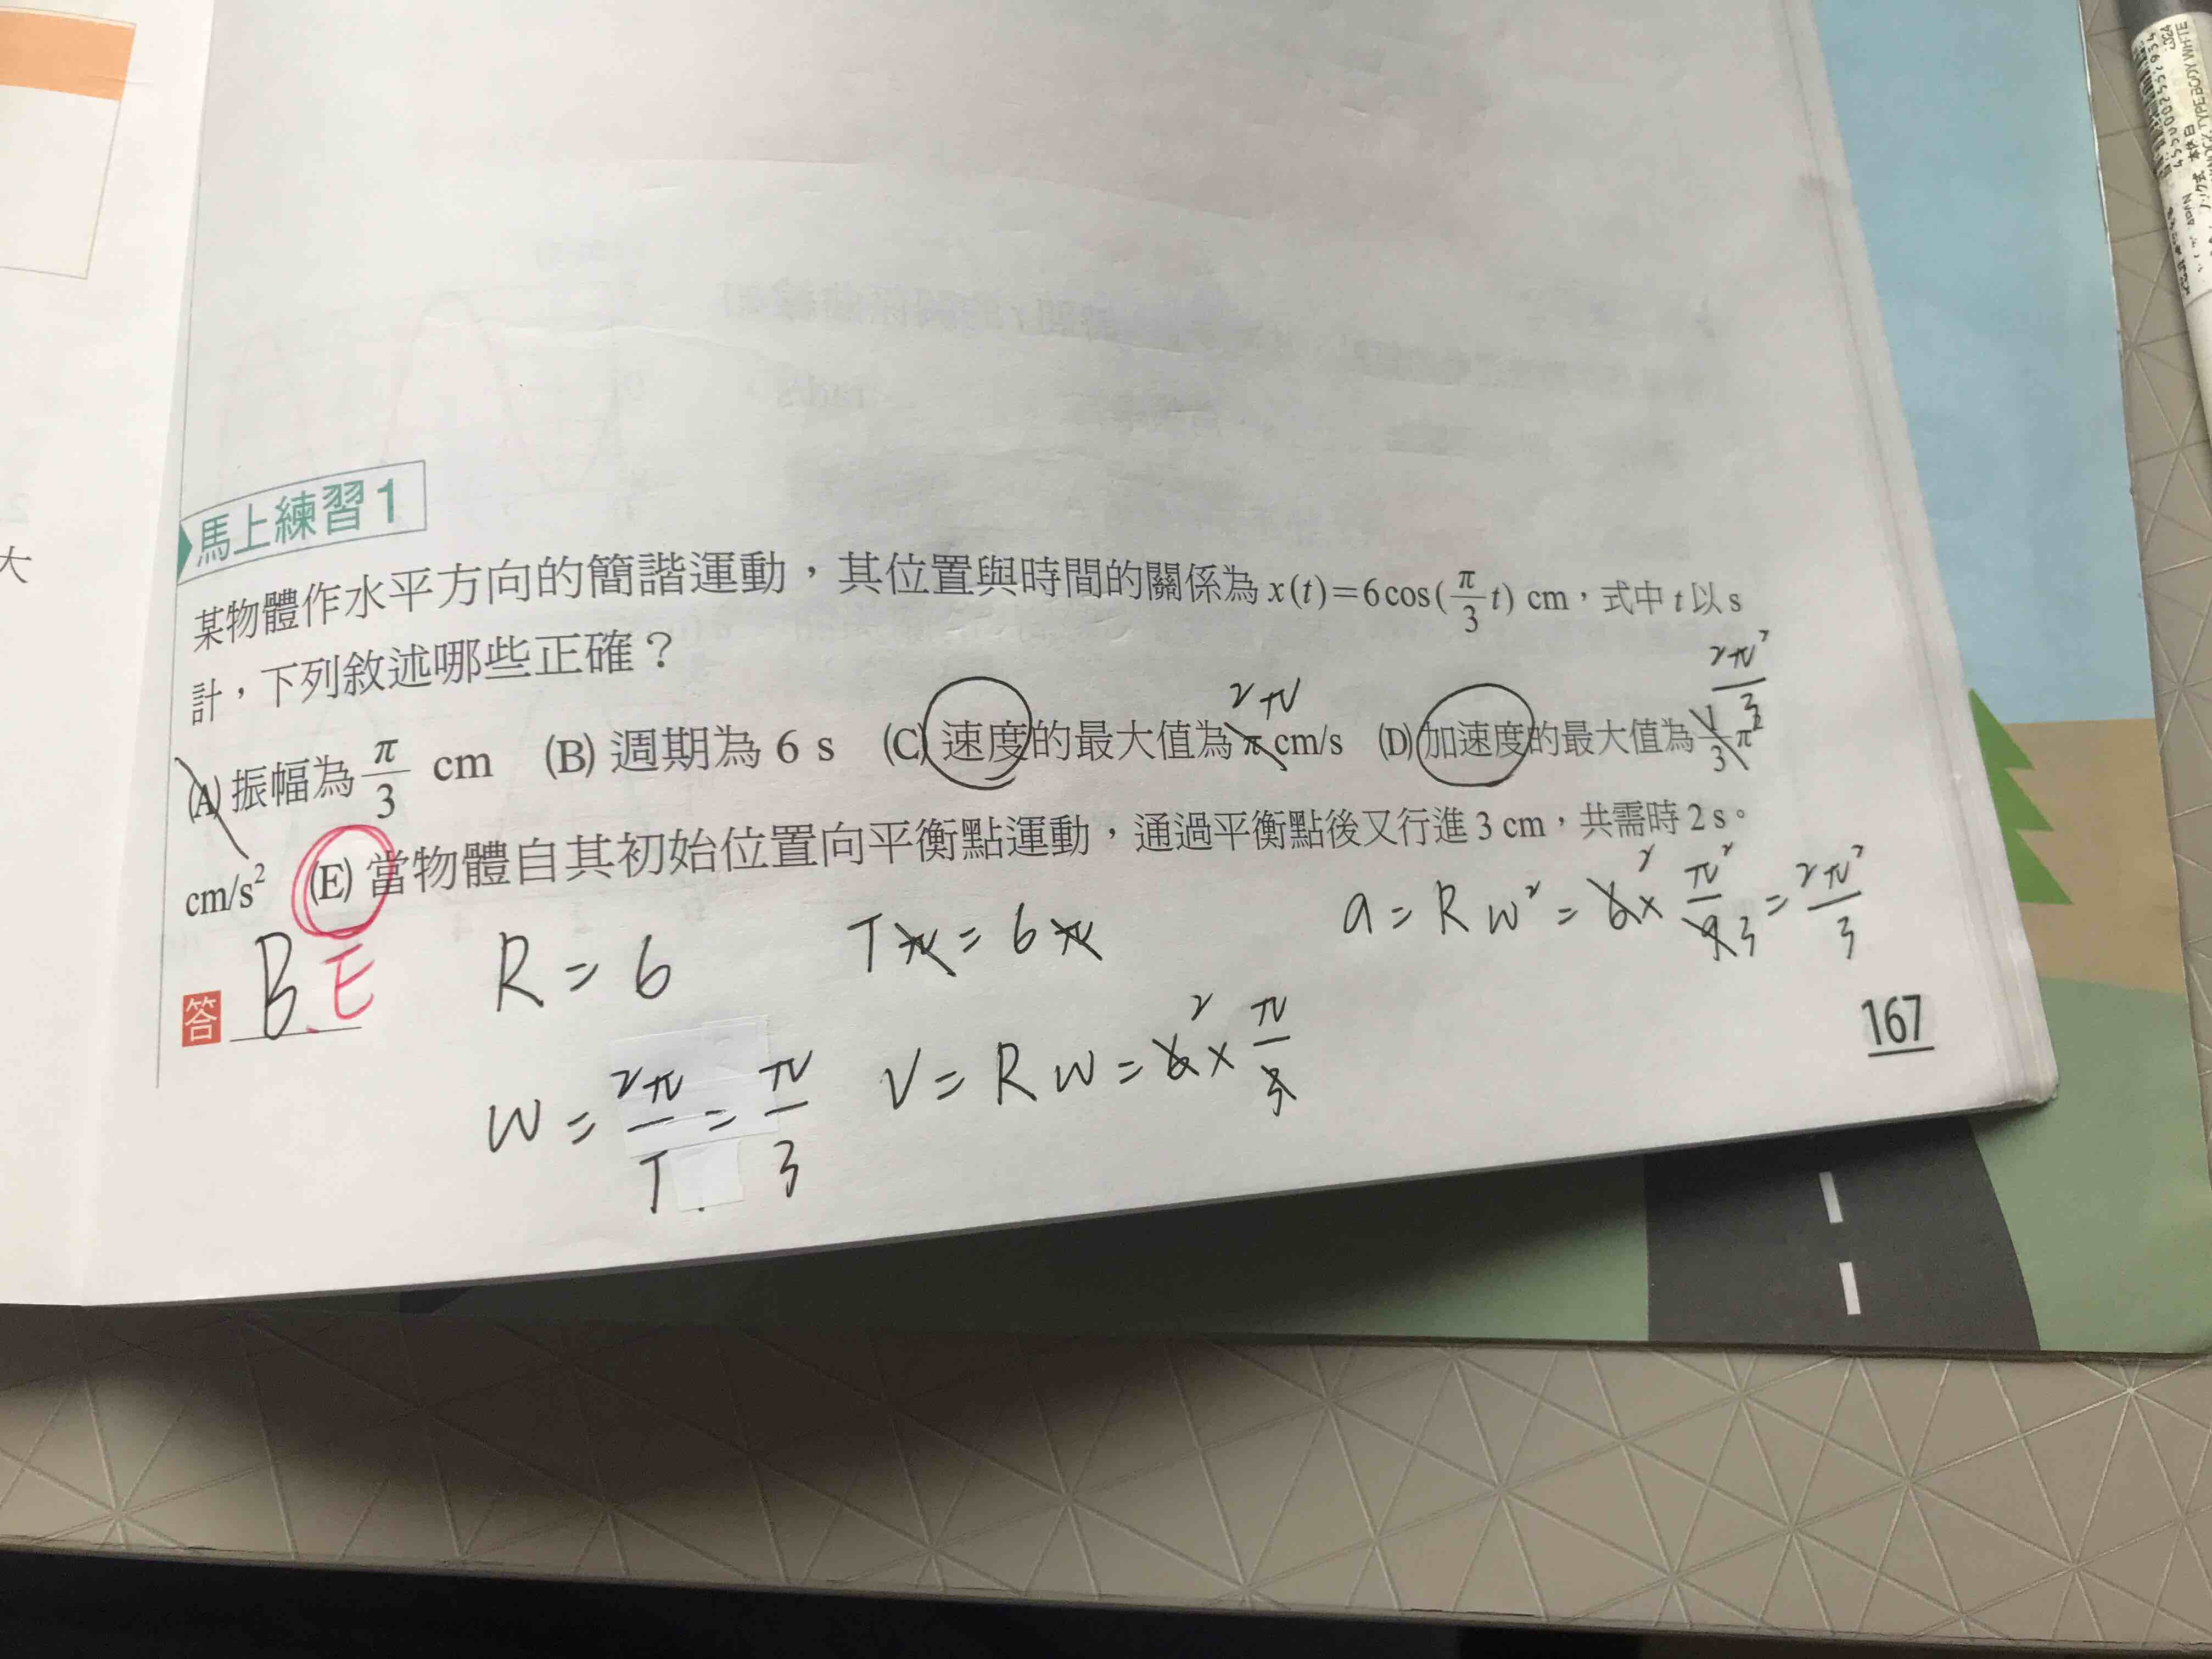 馬上練習1
某物體作水平方向的簡諧運動，其位置與時間的關係為 x(t)=6cos(π/3 t) cm，式中 t 以 s
計，下列敘述哪些正確？
2π
2π²/3
(A) 振幅為 π/3 cm (B) 週期為 6 s (C) 速度的最大值為 π cm/s (D) 加速度的最大值為 1/3 π²
cm/s² (E) 當物體自其初始位置向平衡點運動，通過平衡點後又行進 3 cm，共需時 2 s。
答 B.E
R = 6
Tπ = 6π
a = Rw² = 6 × π²/9 = 2π²/3
w = 2π/T = π/3
V = Rw = 6 × π/3
167
大